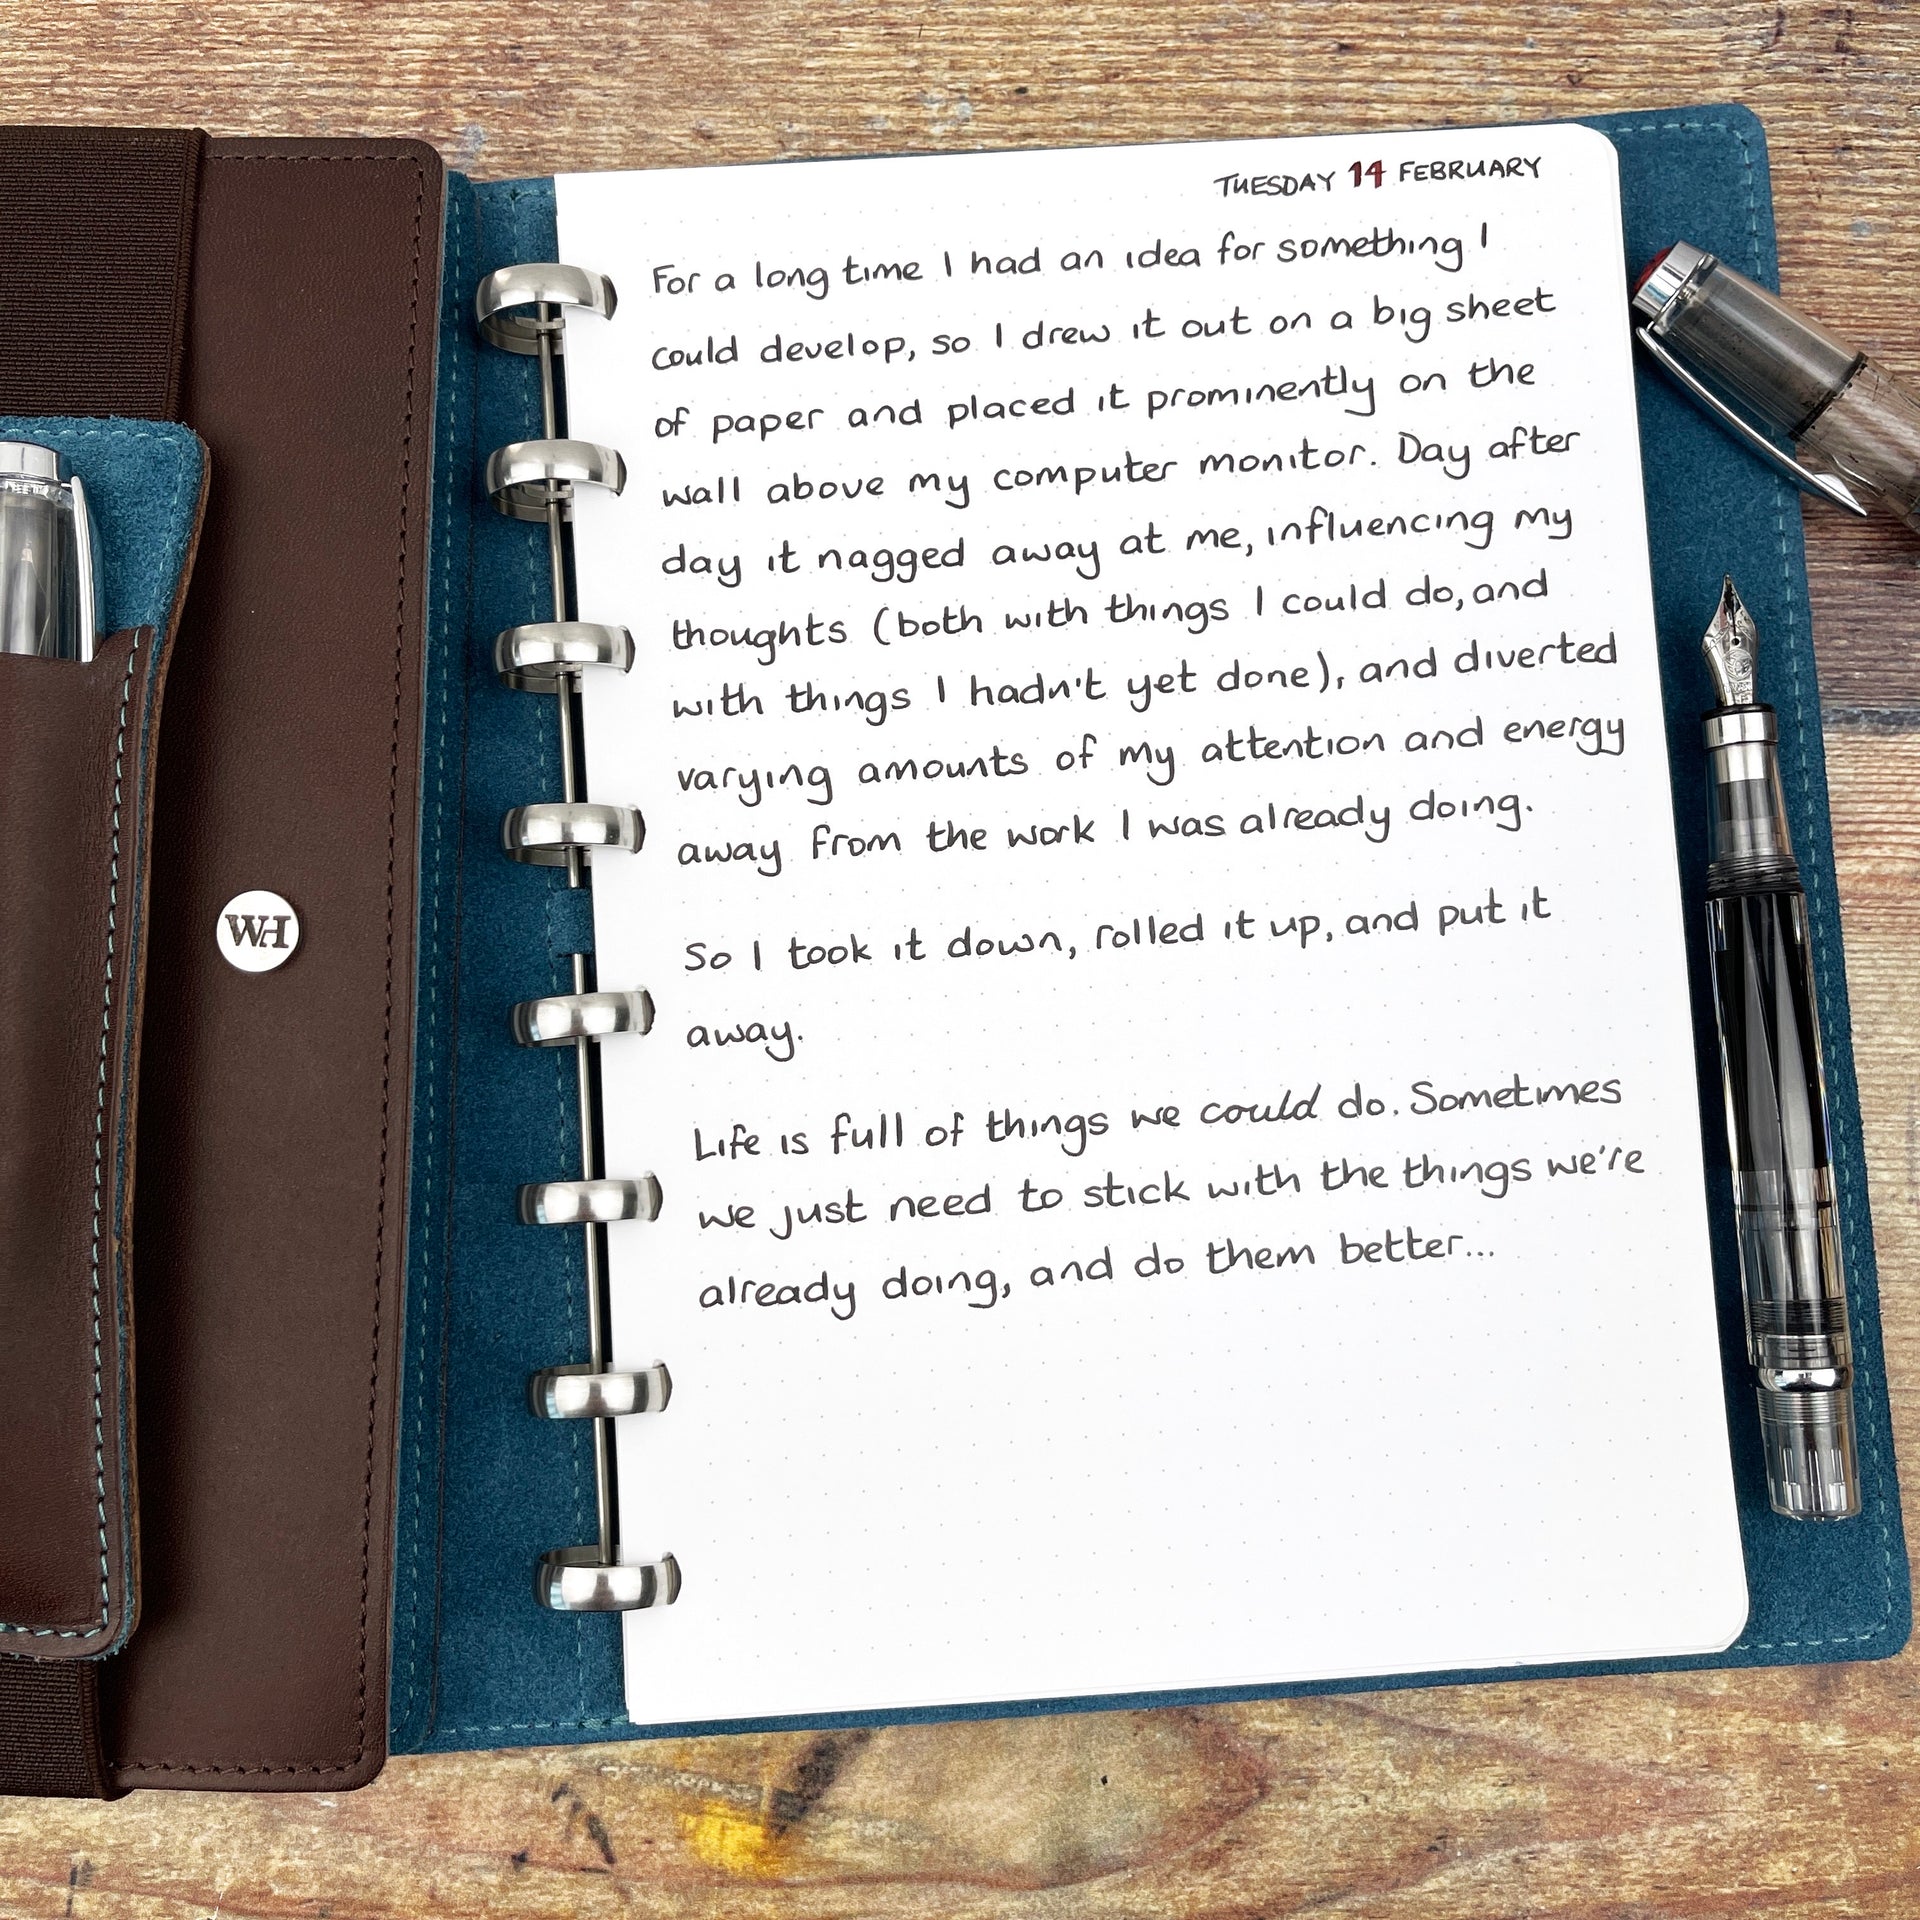 TUESDAY 14 FEBRUARY
For a long time I had an idea for something I
could develop, so I drew it out on a big sheet
of paper and placed it prominently on the
wall above my computer monitor. Day after
day it nagged away at me, influencing my
thoughts (both with things I could do, and
with things I hadn't yet done), and diverted
varying amounts of my attention and energy
away from the work I was already doing.
So I took it down, rolled it up, and put it
away.
Life is full of things we could do. Sometimes
we just need to stick with the things we're
already doing, and do them better...
WH